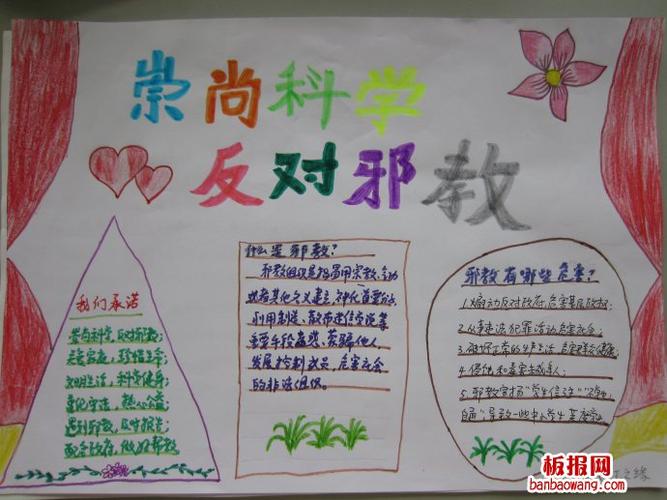 崇尚科学
反对邪教
我们承诺
崇尚科学,反对邪教;
关爱家庭,珍惜生命;
文明生活,科学健身;
遵纪守法,热心公益
遇到邪教,及时报告;
配合政府,做好帮教
什么是邪教?
邪教组织是指冒用宗教、气功
或者其他名义建立,神化首要分子
利用制造、散布迷信邪说等
手段蛊惑、蒙骗他人,
发展控制成员,危害社会
的非法组织。
邪教有哪些危害?
1.煽动反对政府,危害基层政权;
2.从事违法犯罪活动危害社会;
3.破坏正常的生产生活,危害群众健康;
4.侵蚀和毒害未成年人;
5.邪教宣扬"
导致一些中小学生
板报网
banbaowang.com